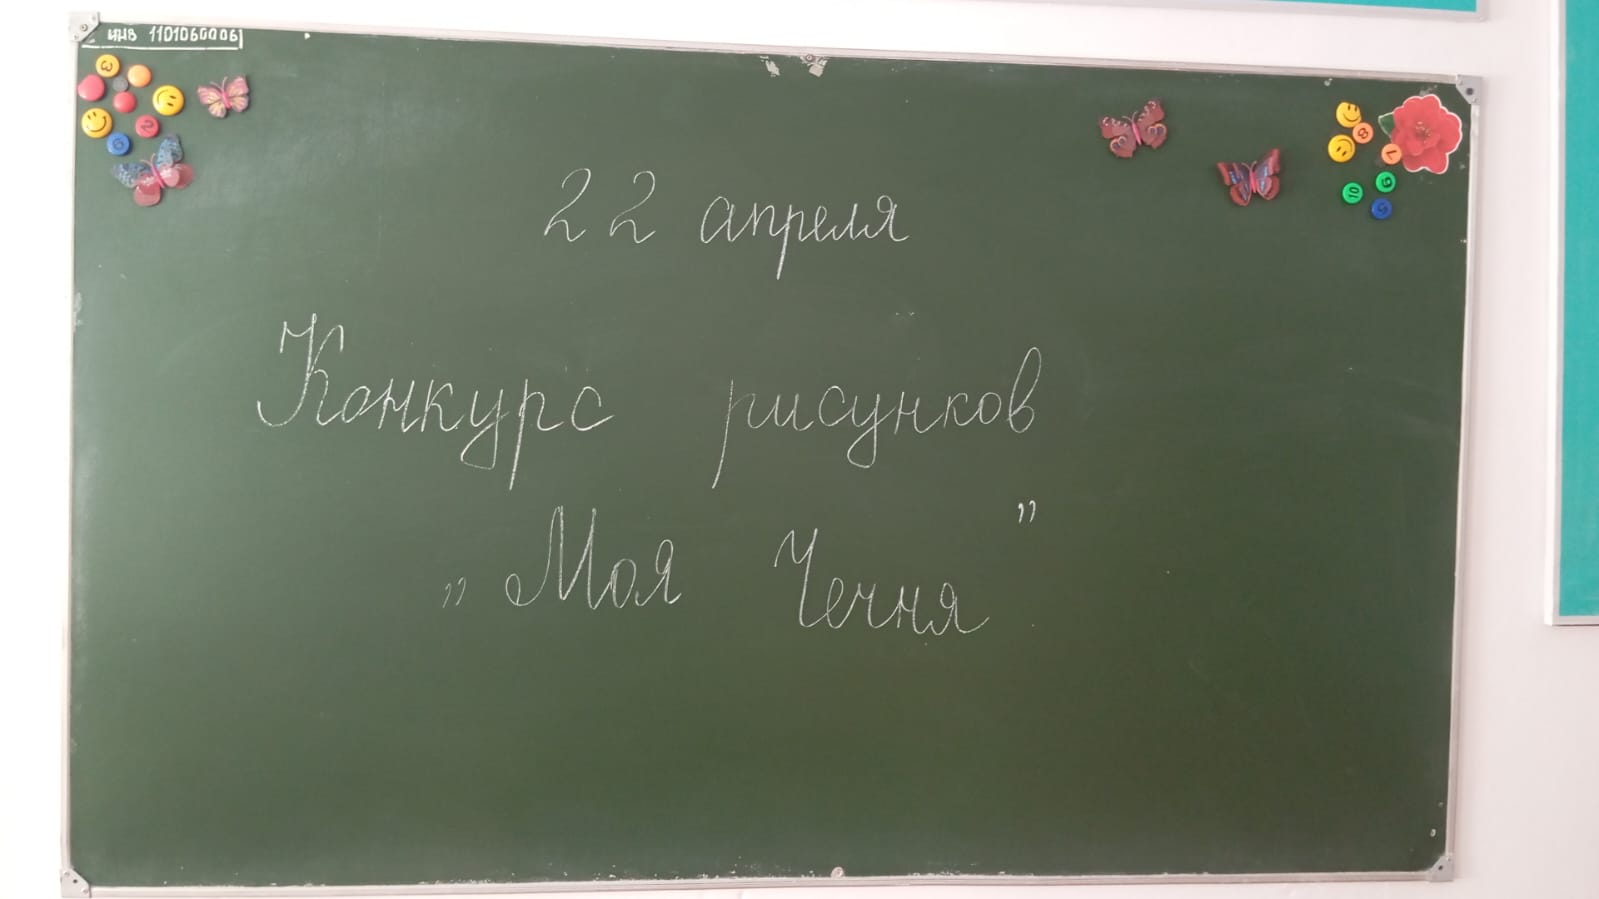 инв 1101060006
22 апреля
Конкурс рисунков
„Моя Чечня”